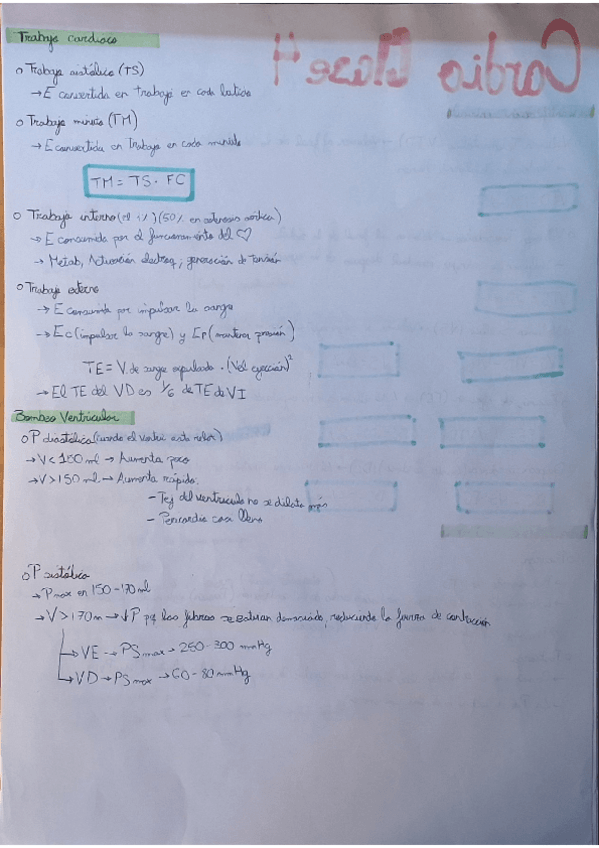 Trabajo cardiaco
Cardio Clase 4
o Trabajo sistólico (TS)
→ E convertida en trabajo en cada latido
o Trabajo minuto (TM)
→ E convertida en Trabajo en cada minuto
TM = TS · FC
o Trabajo interno (el 1%) (50% en estenosis aórtica)
→ E consumida por el funcionamiento del ♡
→ Metab, Activación electroq, generación de Tensión
o Trabajo externo
→ E consumida por impulsar la sangre
→ Ec (impulsar la sangre) y Ep (mantener presión)
TE = V. de sangre expulsado · (Vel eyección)²
→ El TE del VD es 1/6 de TE de VI
Bombeo Ventricular
o P diastólica (cuando el ventri esta)
→ V < 150 ml → Aumenta poco
→ V > 150 ml → Aumenta rápido.
- Tej del ventriculo no se dilata más
- Pericardio casi lleno
o P sistólica
→ Pmax en 150-170 ml
→ V > 170 m → ↓P pq las fibras se estiran demasiado, reduciendo la fuerza de contracción
→ VE → PSmax → 250-300 mmHg
→ VD → PSmax → 60-80 mmHg